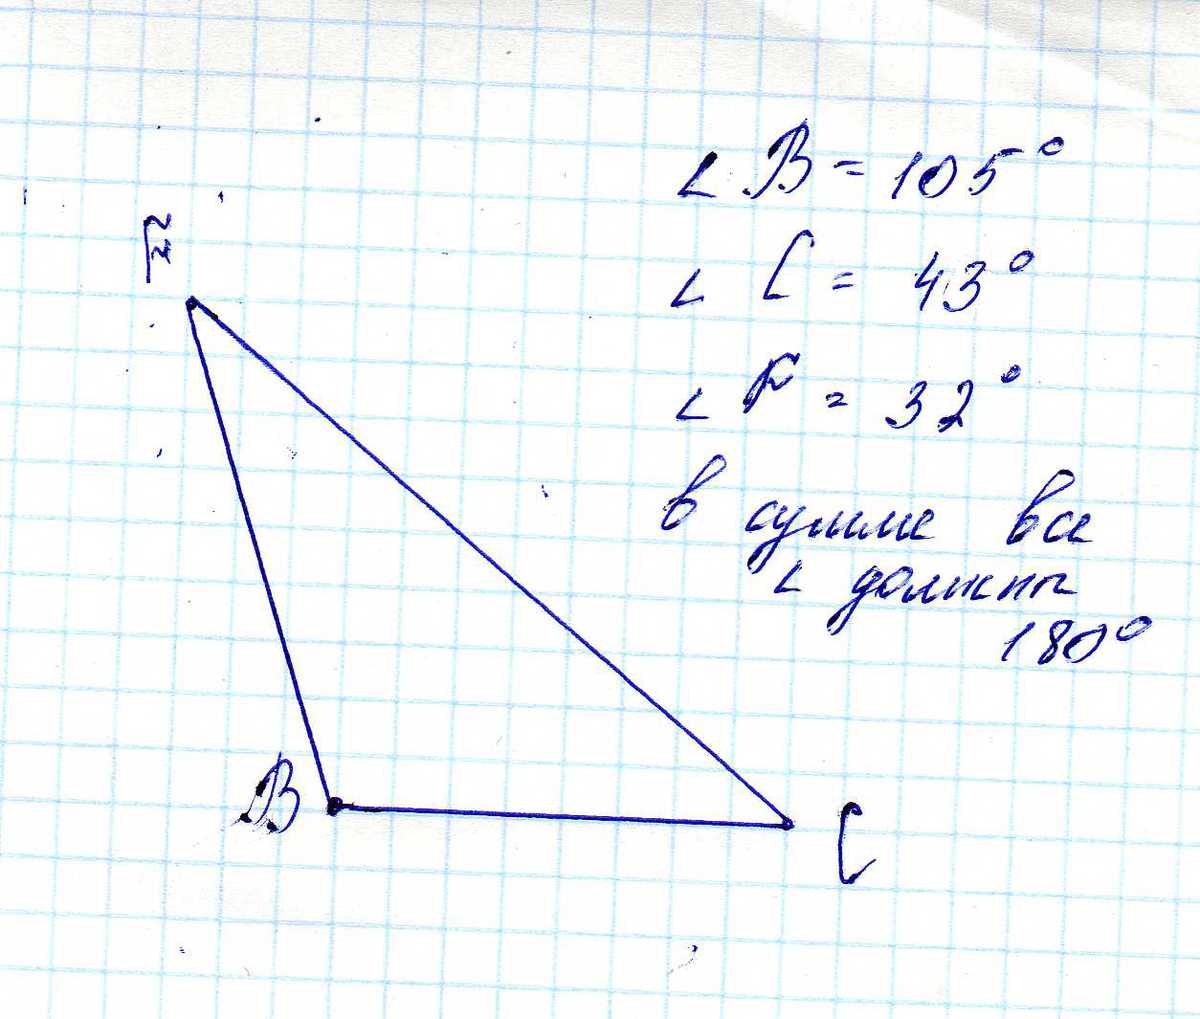 ∠ B = 105°
∠ C = 43°
∠ F = 32°
в сумме все
∠ должны
180°
F
B
C